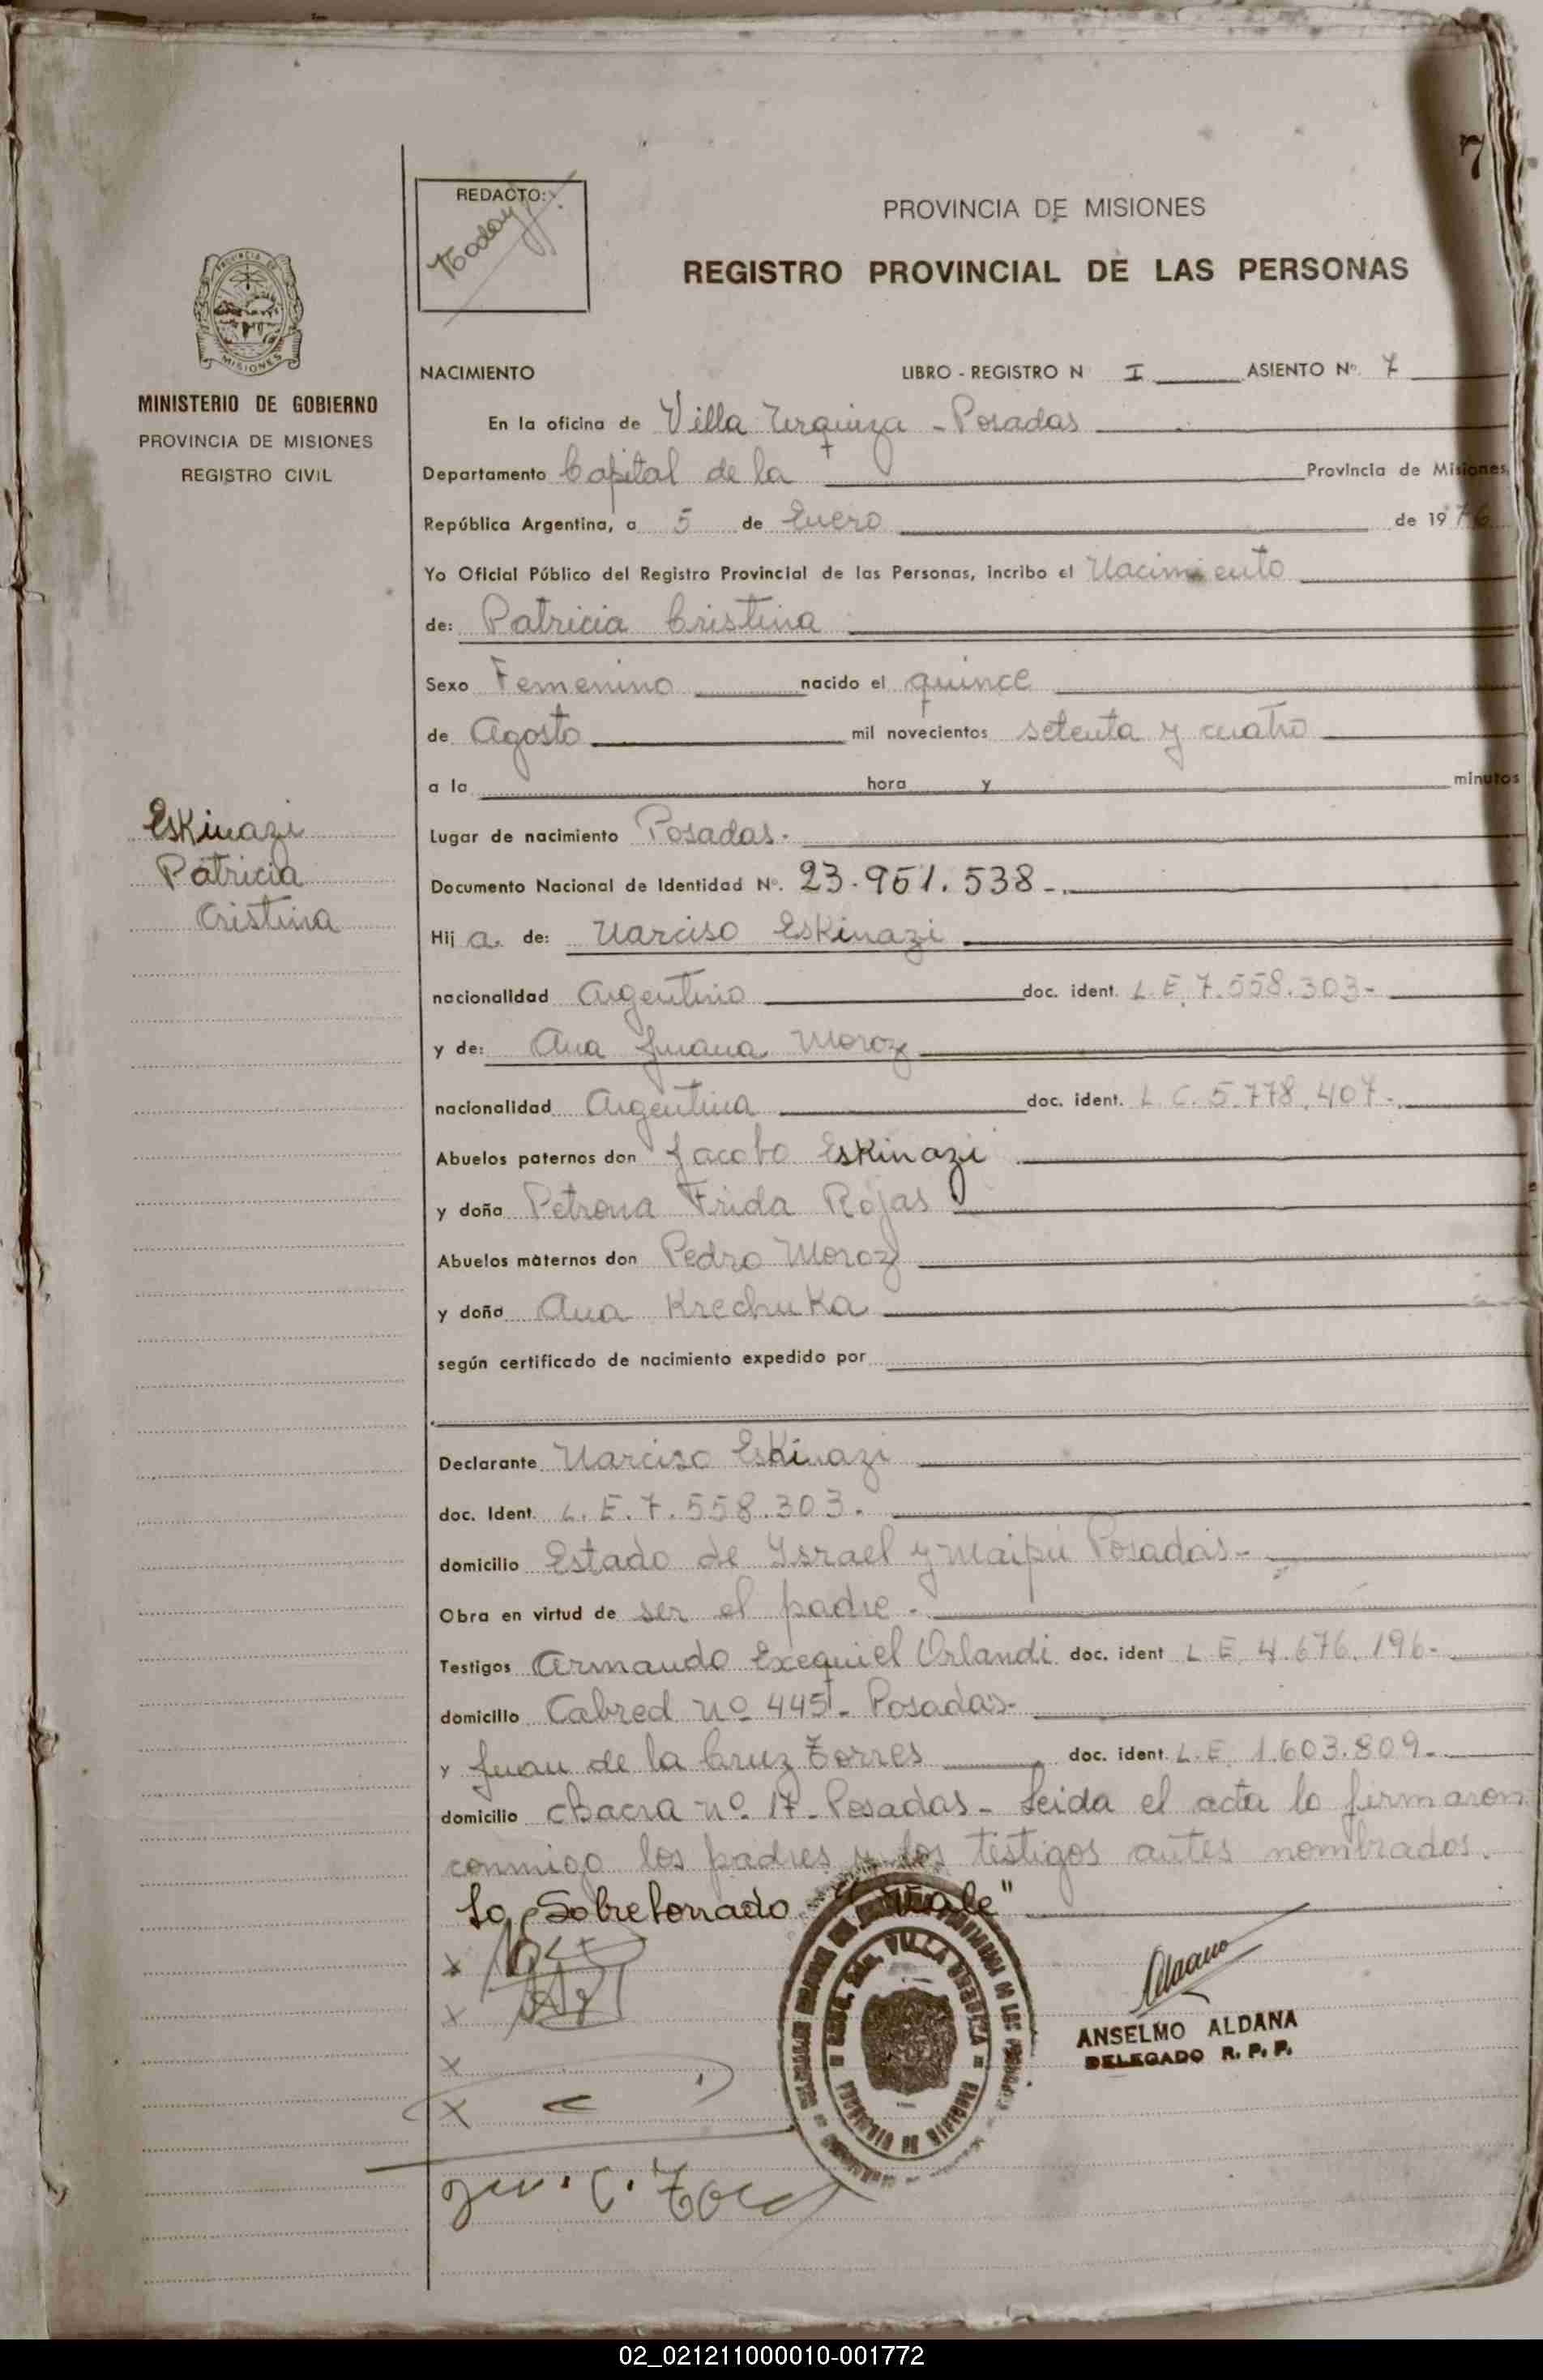 7
REDACTO:
PROVINCIA DE MISIONES
REGISTRO PROVINCIAL DE LAS PERSONAS
PROVINCIA DE
MISIONES
MINISTERIO DE GOBIERNO
PROVINCIA DE MISIONES
REGISTRO CIVIL
NACIMIENTO LIBRO - REGISTRO N I ASIENTO Nº. 7
En la oficina de Villa Urquiza - Posadas
Departamento Capital de la Provincia de Misiones,
República Argentina, a 5 de Enero de 1976
Yo Oficial Público del Registro Provincial de las Personas, incribo el Nacimiento
de: Patricia Cristina
Sexo Femenino nacido el quince
de Agosto mil novecientos setenta y cuatro
a la hora y minutos
Eskinazi
Patricia
Cristina
Lugar de nacimiento Posadas.
Documento Nacional de Identidad Nº. 23.951.538-.
Hij a. de: Narciso Eskinazi
nacionalidad Argentino doc. ident. L.E. 7.558.303-
y de: Ana Juana Moroz
nacionalidad Argentina doc. ident. L.C. 5.778.407-.
Abuelos paternos don Jacobo Eskinazi
y doña Petrona Frida Rojas
Abuelos maternos don Pedro Moroz
y doña Ana Krechuka
según certificado de nacimiento expedido por
Declarante Narciso Eskinazi
doc. Ident. L.E. 7.558.303.
domicilio Estado de Israel y Maipú Posadas-
Obra en virtud de ser el padre.
Testigos Armando Exequiel Orlandi doc. ident L.E. 4.676.196-
domicilio Cabred Nº 445- Posadas-
y Juan de la Cruz Torres doc. ident. L.E. 1.603.809-
domicilio chacra nº 17- Posadas- Leida el acta lo firmaron
conmigo los padres y los testigos antes nombrados.
Lo Sobreborrado "Vale"
x
x
x
x
VILLA URQUIZA
ANSELMO ALDANA
DELEGADO R. P. P.
02_021211000010-001772